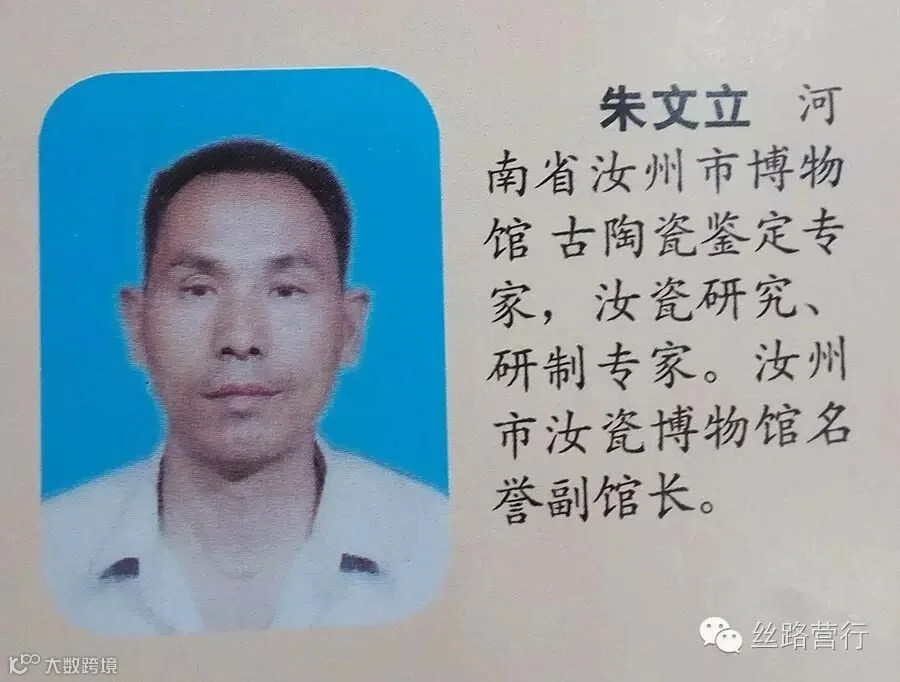 朱文立 河
南省汝州市博物
馆 古陶瓷鉴定专
家，汝瓷研究、
研制专家。汝州
市汝瓷博物馆名
誉副馆长。
丝路营行
大数跨境